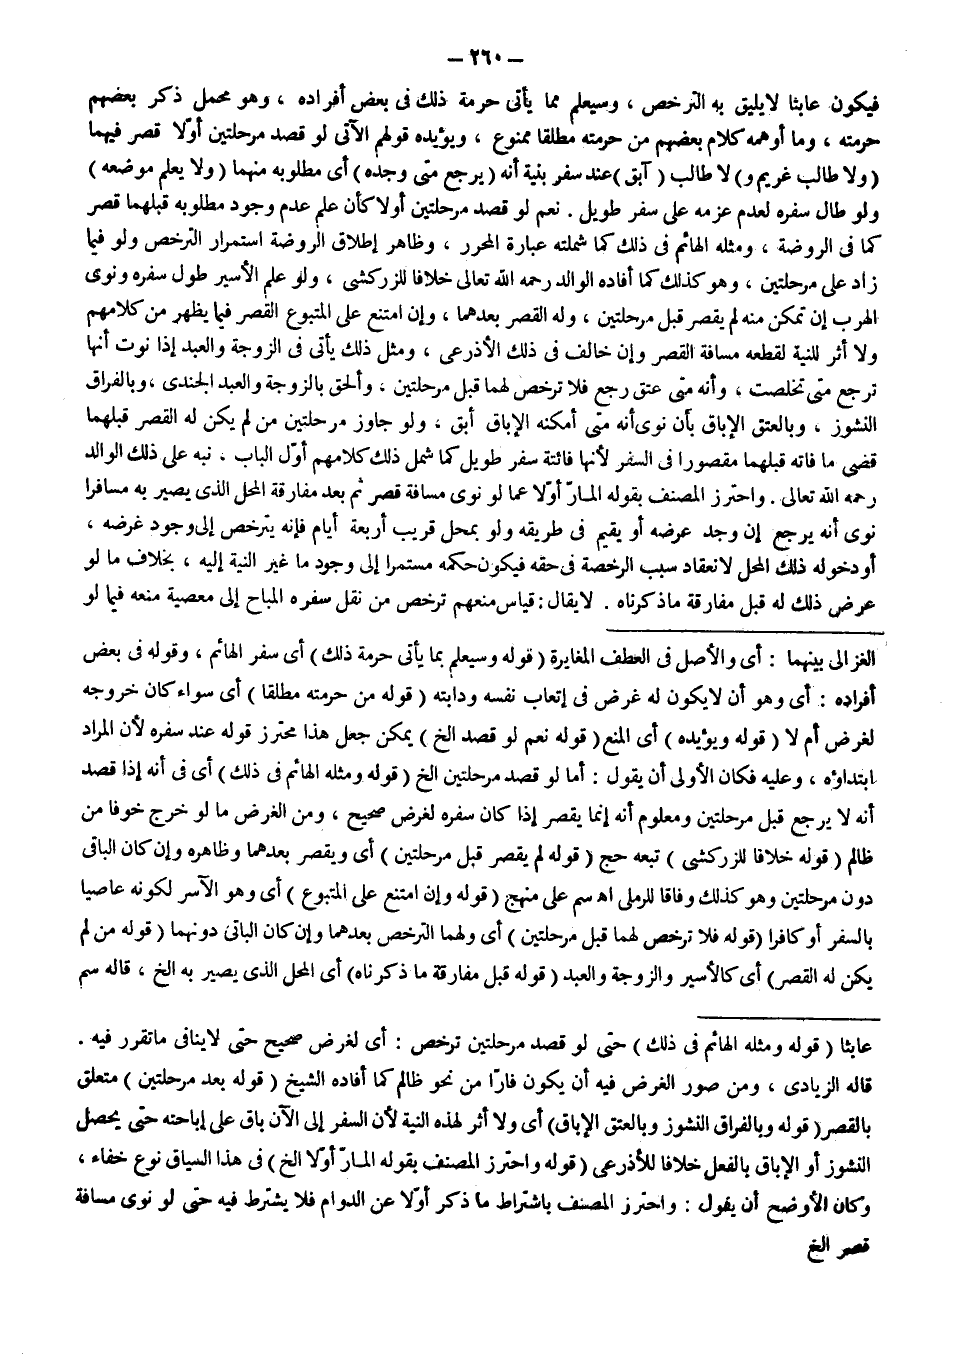 – ٢٦٠ –
فيكون عابثا لايليق به الترخص ، وسيعلم مما يأتى حرمة ذلك فى بعض أفراده ، وهو محمل ذكر بعضهم
حرمته ، وما أوهمه كلام بعضهم من حرمته مطلقا ممنوع ، ويؤيده قولهم الآتى لو قصد مرحلتين أوّلا قصر فيهما
(ولا طالب غريم و) لا طالب ( آبق ) عند سفر بنية أنه (يرجع متى وجده) أى مطلوبه منهما (ولا يعلم موضعه )
ولو طال سفره لعدم عزمه على سفر طويل . نعم لو قصد مرحلتين أولا كأن علم عدم وجود مطلوبه قبلهما قصر
كما فى الروضة ، ومثله الهائم فى ذلك كما شملته عبارة المحرر ، وظاهر إطلاق الروضة استمرار الترخص ولو فيما
زاد على مرحلتين ، وهو كذلك كما أفاده الوالد رحمه الله تعالى خلافا للزركشى ، ولو علم الأسير طول سفره ونوى
الهرب إن تمكن منه لم يقصر قبل مرحلتين ، وله القصر بعدهما ، وإن امتنع على المتبوع القصر فيما يظهر من كلامهم
ولا أثر للنية لقطعه مسافة القصر وإن خالف فى ذلك الأذرعى ، ومثل ذلك يأتى فى الزوجة والعبد إذا نوت أنها
ترجع متى تخلصت ، وأنه متى عتق رجع فلا ترخص لهما قبل مرحلتين ، وألحق بالزوجة والعبد الجندى ، وبالفراق
النشوز ، وبالعتق الإباق بأن نوى أنه متى أمكنه الإباق أبق ، ولو جاوز مرحلتين من لم يكن له القصر قبلهما
قضى ما فاته قبلهما مقصورا فى السفر لأنها فائتة سفر طويل كما شمل ذلك كلامهم أوّل الباب . نبه على ذلك الوالد
رحمه الله تعالى . واحترز المصنف بقوله المارّ أوّلا عما لو نوى مسافة قصر ثم بعد مفارقة المحل الذى يصير به مسافرا
نوى أنه يرجع إن وجد عرضه أو يقيم فى طريقه ولو بمحل قريب أربعة أيام فإنه يترخص إلى وجود غرضه ،
أو دخوله ذلك المحل لانعقاد سبب الرخصة فى حقه فيكون حكمه مستمرا إلى وجود ما غير النية إليه ، بخلاف ما لو
عرض ذلك له قبل مفارقة ماذكرناه . لايقال : قياس منعهم ترخص من نقل سفره المباح إلى معصية منعه فيما لو
الغزالى بينهما : أى والأصل فى العطف المغايرة (قوله وسيعلم بما يأتى حرمة ذلك) أى سفر الهائم ، وقوله فى بعض
أفراده : أى وهو أن لايكون له غرض فى إتعاب نفسه ودابته ( قوله من حرمته مطلقا ) أى سواء كان خروجه
لغرض أم لا ( قوله ويؤيده ) أى المنع ( قوله نعم لو قصد الخ ) يمكن جعل هذا محترز قوله عند سفره لأن المراد
ابتداؤه ، وعليه فكان الأولى أن يقول : أما لو قصد مرحلتين الخ (قوله ومثله الهائم فى ذلك) أى فى أنه إذا قصد
أنه لا يرجع قبل مرحلتين ومعلوم أنه إنما يقصر إذا كان سفره لغرض صحيح ، ومن الغرض ما لو خرج خوفا من
ظالم ( قوله خلافا للزركشى ) تبعه حج ( قوله لم يقصر قبل مرحلتين ) أى ويقصر بعدهما وظاهره وإن كان الباقى
دون مرحلتين وهو كذلك وفاقا للرملى اه سم على منهج ( قوله وإن امتنع على المتبوع ) أى وهو الآسر لكونه عاصيا
بالسفر أو كافرا (قوله فلا ترخص لهما قبل مرحلتين ) أى ولهما الترخص بعدهما وإن كان الباقى دونهما ( قوله من لم
يكن له القصر) أى كالأسير والزوجة والعبد ( قوله قبل مفارقة ما ذكرناه) أى المحل الذى يصير به الخ ، قاله سم
عابثا ( قوله ومثله الهائم فى ذلك ) حتى لو قصد مرحلتين ترخص : أى لغرض صحيح حتى لاينافى ماتقرر فيه .
قاله الزيادى ، ومن صور الغرض فيه أن يكون فارّا من نحو ظالم كما أفاده الشيخ ( قوله بعد مرحلتين ) متعلق
بالقصر ( قوله وبالفراق النشوز وبالعتق الإباق) أى ولا أثر لهذه النية لأن السفر إلى الآن باق على إباحته حتى يحصل
النشوز أو الإباق بالفعل خلافا للأذرعى ( قوله واحترز المصنف بقوله المارّ أوّلا الخ ) فى هذا السياق نوع خفاء ،
وكان الأوضح أن يقول : واحترز المصنف باشتراط ما ذكر أوّلا عن الدوام فلا يشترط فيه حتى لو نوى مسافة
قصر الخ